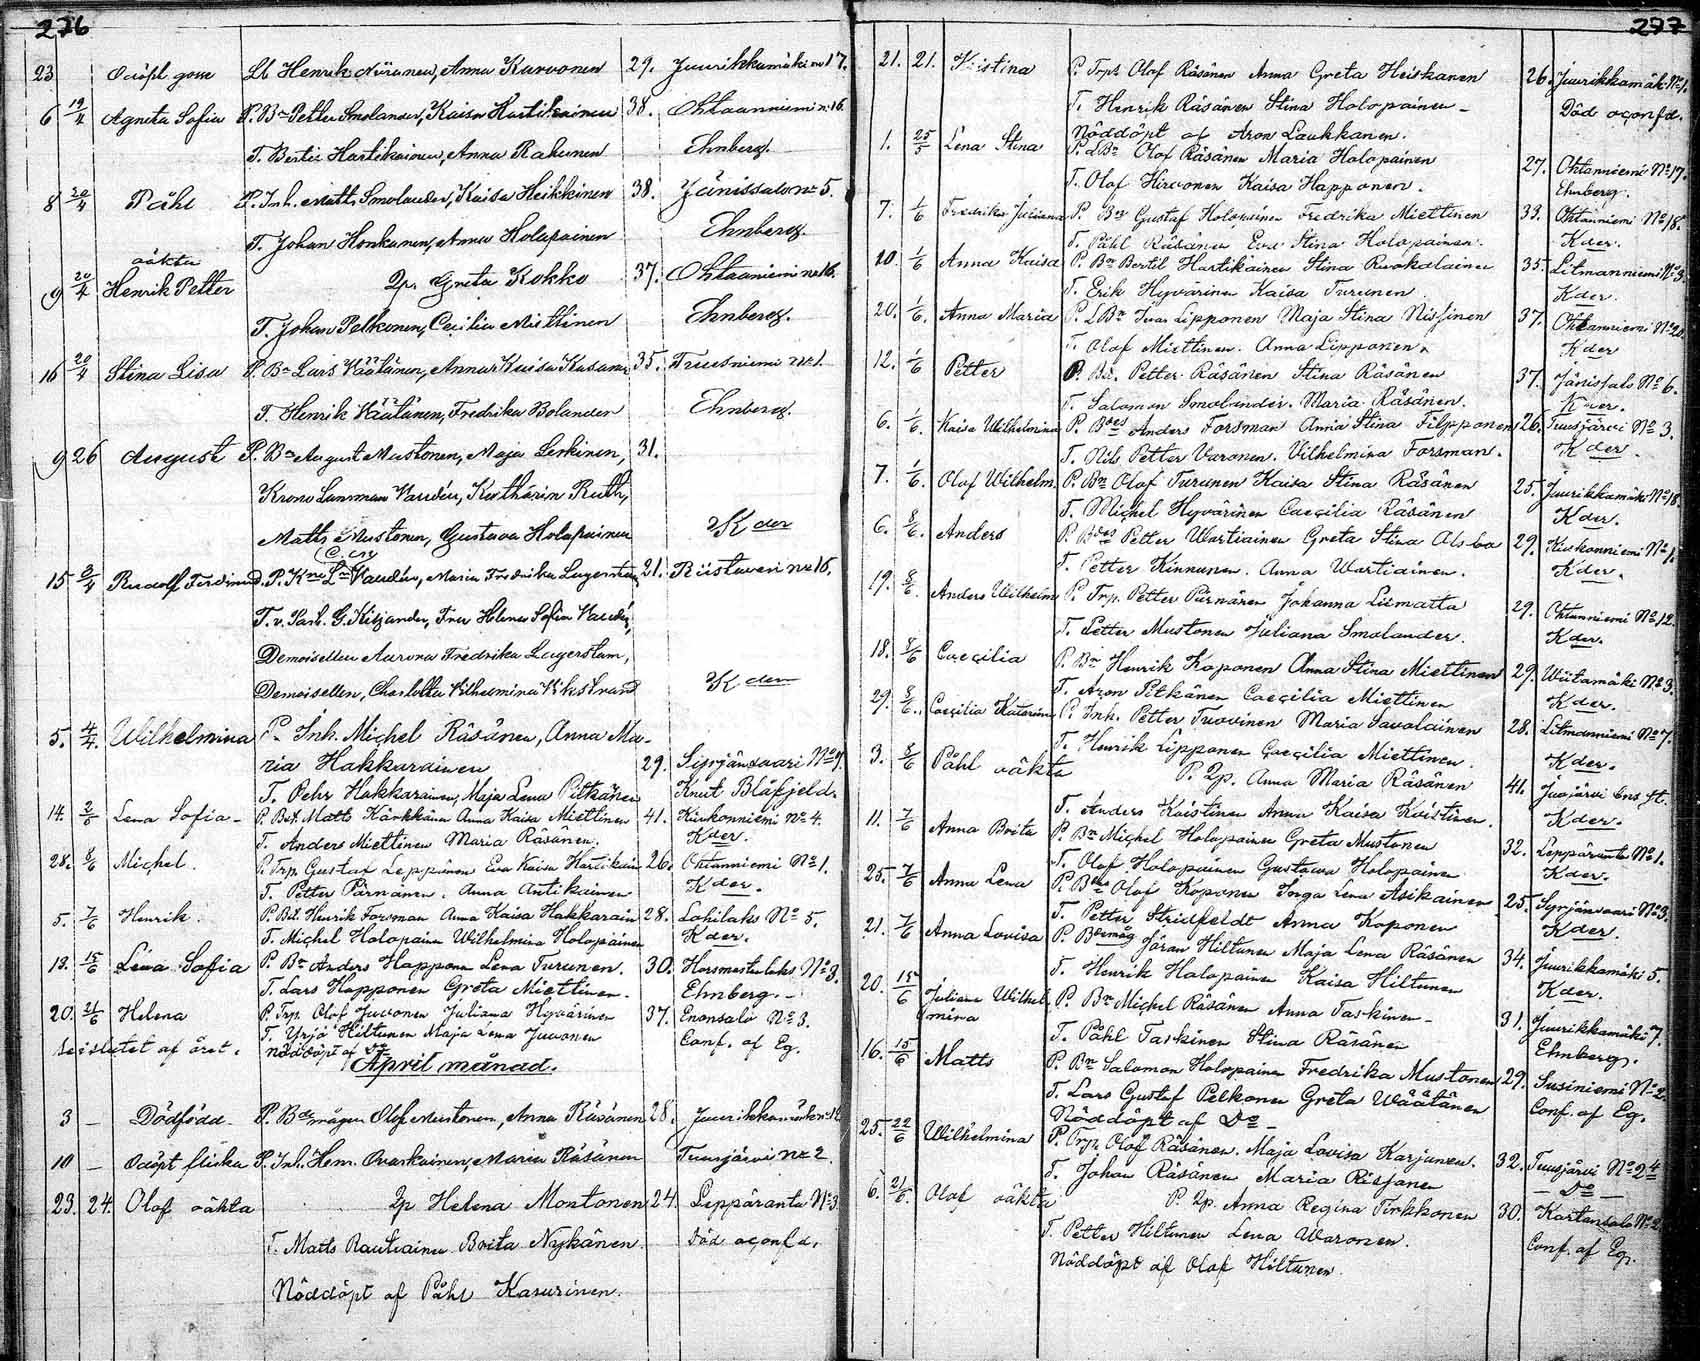 276
23 Odöpt gosse Lb Henrik Niiranen, Anna Kurvonen 29. Juurikkamäki no 17.
6 19/4 Agneta Sofia P. Bn Petter Smolander, Kaisa Hartikainen 38. Ohtaaniemi no 16.
T. Bertil Hartikainen, Anna Rahunen Ehnberg.
8 20/4 Påhl P. Inh. Matts Smolander, Kaisa Heikkinen 38. Jänissalo no 5.
T. Johan Honkanen, Anna Holopainen Ehnberg.
oäkta
9 20/4 Henrik Petter Qp. Greta Kokko 37. Ohtaaniemi no 16.
T. Johan Pelkonen, Cecilia Miettinen Ehnberg.
16 20/4 Stina Lisa P. Bn Lars Väätänen, Anna Kaisa Kasanen 35. Truusniemi no 1.
T. Henrik Väätänen, Fredrika Bolander Ehnberg.
9 26 August P. Bn August Mustonen, Maja Leskinen, 31.
Krono Lansman Vaudén, Katharin Ruth,
Matts Mustonen, Gustava Holopainen Kder
15 3/4 Rudolf Ferdinand P. Kno Ln Vaudén, Maria Fredrika Lagerstam 21. Riistaveri no 16.
T. v. Past. G. Kitzander, Fru Helena Sofia Vaudén,
Demoisellen Aurora Fredrika Lagerstam,
Demoisellen, Charlotta Vilhelmina Vikstrand Kder
5. 4/4. Wilhelmina P. Inh. Michel Räsänen, Anna Ma-
ria Hakkarainen 29. Syrjänvaari No 9.
T. Pehr Hakkarainen, Maja Lena Pitkänen Knut Blåfjeld.
14. 2/6 Lena Sofia - P. Bst. Matts Kärkkäinen Anna Kaisa Miettinen 41. Kirkonniemi No 4.
T. Anders Miettinen Maria Räsänen. Kder.
28. 8/6 Michel. P. Trp Gustaf Leppänen Eva Kaisa Hartikain 26. Ohtanniemi No 1.
T. Petter Pärnänen. Anna Antikainen Kder.
5. 7/6 Henrik. P. Bst. Henrik Forsman Anna Kaisa Hakkarain 28. Lohilaks No 5.
T. Michel Holopainen Wilhelmina Holopainen Kder.
13. 15/6 Lena Sofia P. Bn Anders Happonen Lena Turunen. 30. Horsmastelaks No 3.
T. Lars Happonen Greta Miettinen. Ehnberg. -
20. 21/6 Helena P. Trp. Olof Juvonen Juliana Hyvärinen 37. Enonsalo No 3.
T. Yrjö Hiltunen Maja Lena Juvonen Conf. af Eg.
nöddöpt af Do
April månad.
3 - Dödfödd - P. Bdemågen Olof Mustonen, Anna Räsänen 28. Juurikkamäki no 12
10 - Odöpt flicka P. Inh. Henr. Ovaskainen, Maria Räsänen Tuusjärvi no 2.
23. 24. Olof oäkta Qp Helena Montonen 24. Leppäranta No 3.
T. Matts Rautiainen Brita Nykänen. Död oconfd.
Nöddöpt af Påhl Kasurinen.
277
21. 21. Kristina P. Trpr Olof Räsänen Anna Greta Heiskanen 26. Juurikkamäki No 1.
T. Henrik Räsänen Stina Holopainen - Död oconfd.
Nöddöpt af Aron Laukkanen.
1. 25/5 Lena Stina P. dBn Olof Räsänen Maria Holopainen 27. Ohtanniemi No 17.
T. Olof Hirvonen Kaisa Happonen. Ehnberg.
7. 1/6 Fredrika Juliana P. Bn Gustaf Holopainen Fredrika Miettinen 33. Ohtanniemi No 18.
T. Påhl Räsänen Eva Stina Holopainen. Kder.
20. 1/6 Anna Kaisa P. Bn Bertil Hartikainen Stina Ruokolainen 35. Litmanniemi No 3.
T. Erik Hyvärinen Kaisa Turunen. Kder.
20. 1/6. Anna Maria P. LBn Ivar Lipponen Maja Stina Nissinen 37. Ohtanniemi No 20.
T. Olof Miettinen. Anna Lipponen. Kder
12. 1/6 Petter P. Bn. Petter Räsänen Stina Räsänen 37. Jänissalo No 6.
T. Salomon Smolander. Maria Räsänen. Kder.
6. 1/6. Kaisa Wilhelmina P. Bdes Anders Forsman Anna Stina Filpponen 26. Tuusjärvi No 3.
T. Nils Petter Varonen. Vilhelmina Forsman. Kder.
7. 1/6. Olof Wilhelm. P. Bn Olof Turunen Kaisa Stina Räsänen 25. Juurikkamäki No 18.
T. Michel Hyvärinen Caecilia Räsänen Kder.
6. 8/6. Anders P. Bdes Petter Wartiainen Greta Stina Olsbo 29. Kirkonniemi No 1.
T. Petter Kinnunen. Anna Wartiainen. Kder.
19. 8/6. Anders Wilhelm P. Trp. Petter Pärnänen Johanna Liimatta 29. Ohtanniemi No 12.
T. Petter Mustonen Juliana Smolander. Kder.
18. 8/6 Caecilia P. Bn Henrik Koponen Anna Stina Miettinen 29. Wiitamäki No 3.
T. Aron Pitkänen Caecilia Miettinen Kder.
29. 8/6. Caecilia Katarina P. Inh. Petter Tuovinen Maria Savolainen 28. Litmanniemi No 7.
T. Henrik Lipponen Caecilia Miettinen. Kder.
3. 8/6 Påhl oäkta P. Qp. Anna Maria Räsänen 41. Juojärvi Ens st.
T. Anders Koistinen Anna Kaisa Koistinen. Kder.
11. 7/6 Anna Brita P. Bn Michel Holopainen Greta Mustonen 32. Leppäranta No 1.
T. Olof Holopainen Gustava Holopainen Kder.
25. 7/6 Anna Lena P. Bdes Olof Koponen Inga Lena Asikainen 25. Syrjänvaari No 3.
T. Petter Stridfeldt Anna Koponen Kder.
21. 7/6 Anna Lovisa P. Bdemåg Jöran Hiltunen Maja Lena Räsänen 34. Juurikkamäki 5.
T. Henrik Holopainen Kaisa Hiltunen Kder.
20. 15/6 Juliana Wilhel
mina P. Bn Michel Räsänen Anna Taskinen - 31. Juurikkamäki 7.
T. Påhl Taskinen Stina Räsänen Ehnberg.
16. 15/6 Matts P. Bn Salomon Holopainen Fredrika Mustonen 29. Susiniemi No 2.
T. Lars Gustaf Pelkonen Greta Wäätänen Conf. af Eg.
Nöddöpt af Do -
25. 22/6 Wilhelmina P. Trp. Olof Räsänen. Maja Lovisa Karjunen. 32. Tuusjärvi No 24
T. Johan Räsänen Maria Risjanen - Do -
6. 21/6 Olof oäkta P. Qp. Anna Regina Tirkkonen 30. Kartansalo No 2
T. Petter Hiltunen Lena Waronen. Conf. af Eg.
Nöddöpt af Olof Hiltunen.